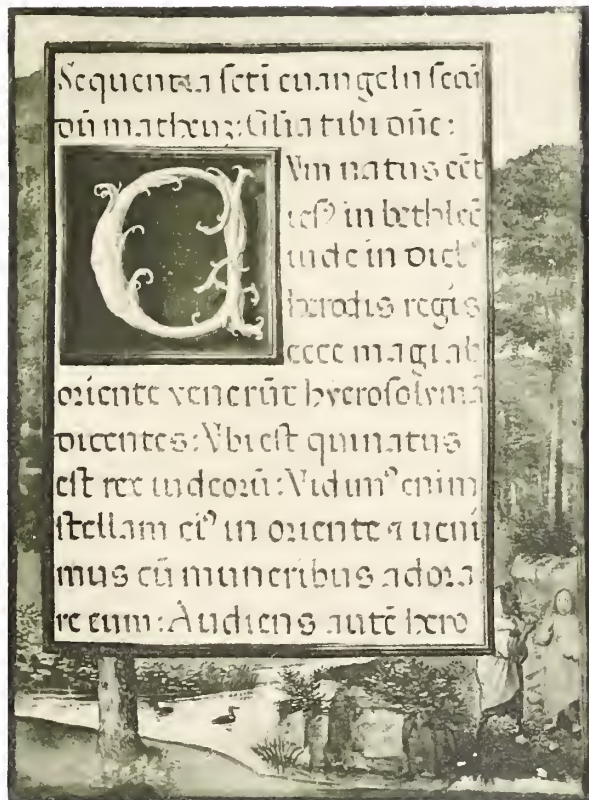 Sequentia scti euangelii secū
dū matheū: Glia tibi dn̄e:
CVm natus eēt
iesꝰ in bethleē
iude in dieb
herodis regis
ecce magi ab
oriente venerūt hyerosolymā
dicentes: Vbi est qui natus
est rex iudeorū: Vidimꝰ enim
stellam eiꝰ in oriente ⁊ ueni
mus cū muneribus adora
re eum: Audiens autē hero